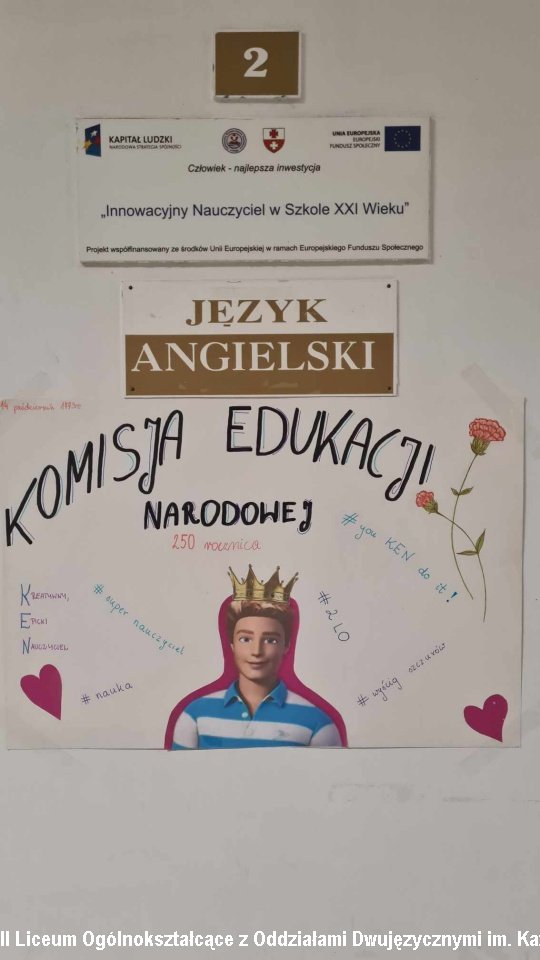 2
KAPITAŁ LUDZKI
NARODOWA STRATEGIA SPÓJNOŚCI
UNIA EUROPEJSKA
EUROPEJSKI
FUNDUSZ SPOŁECZNY
Człowiek - najlepsza inwestycja
„Innowacyjny Nauczyciel w Szkole XXI Wieku”
Projekt współfinansowany ze środków Unii Europejskiej w ramach Europejskiego Funduszu Społecznego
JĘZYK
ANGIELSKI
14 października 1773r.
KOMISJA EDUKACJI
NARODOWEJ
250 rocznica
#you KEN do it!
KREATYWNY,
EPICKI
NAUCZYCIEL
#super nauczyciel
#2 LO
#nauka
#wyścig szczurów
II Liceum Ogólnokształcące z Oddziałami Dwujęzycznymi im. Ka